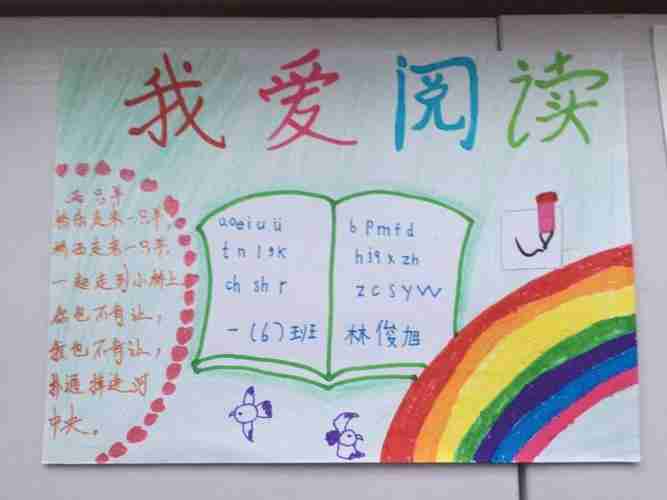 我爱阅读
只羊
走来一只羊，
走来一只羊，
一起走到小桥上
你也不肯让，
我也不肯让，
扑通掉进河
中央。
a o e i u ü
t n l g k
ch sh r
一（6）班
b p m f d
h j q x zh
z c s y w
林俊旭